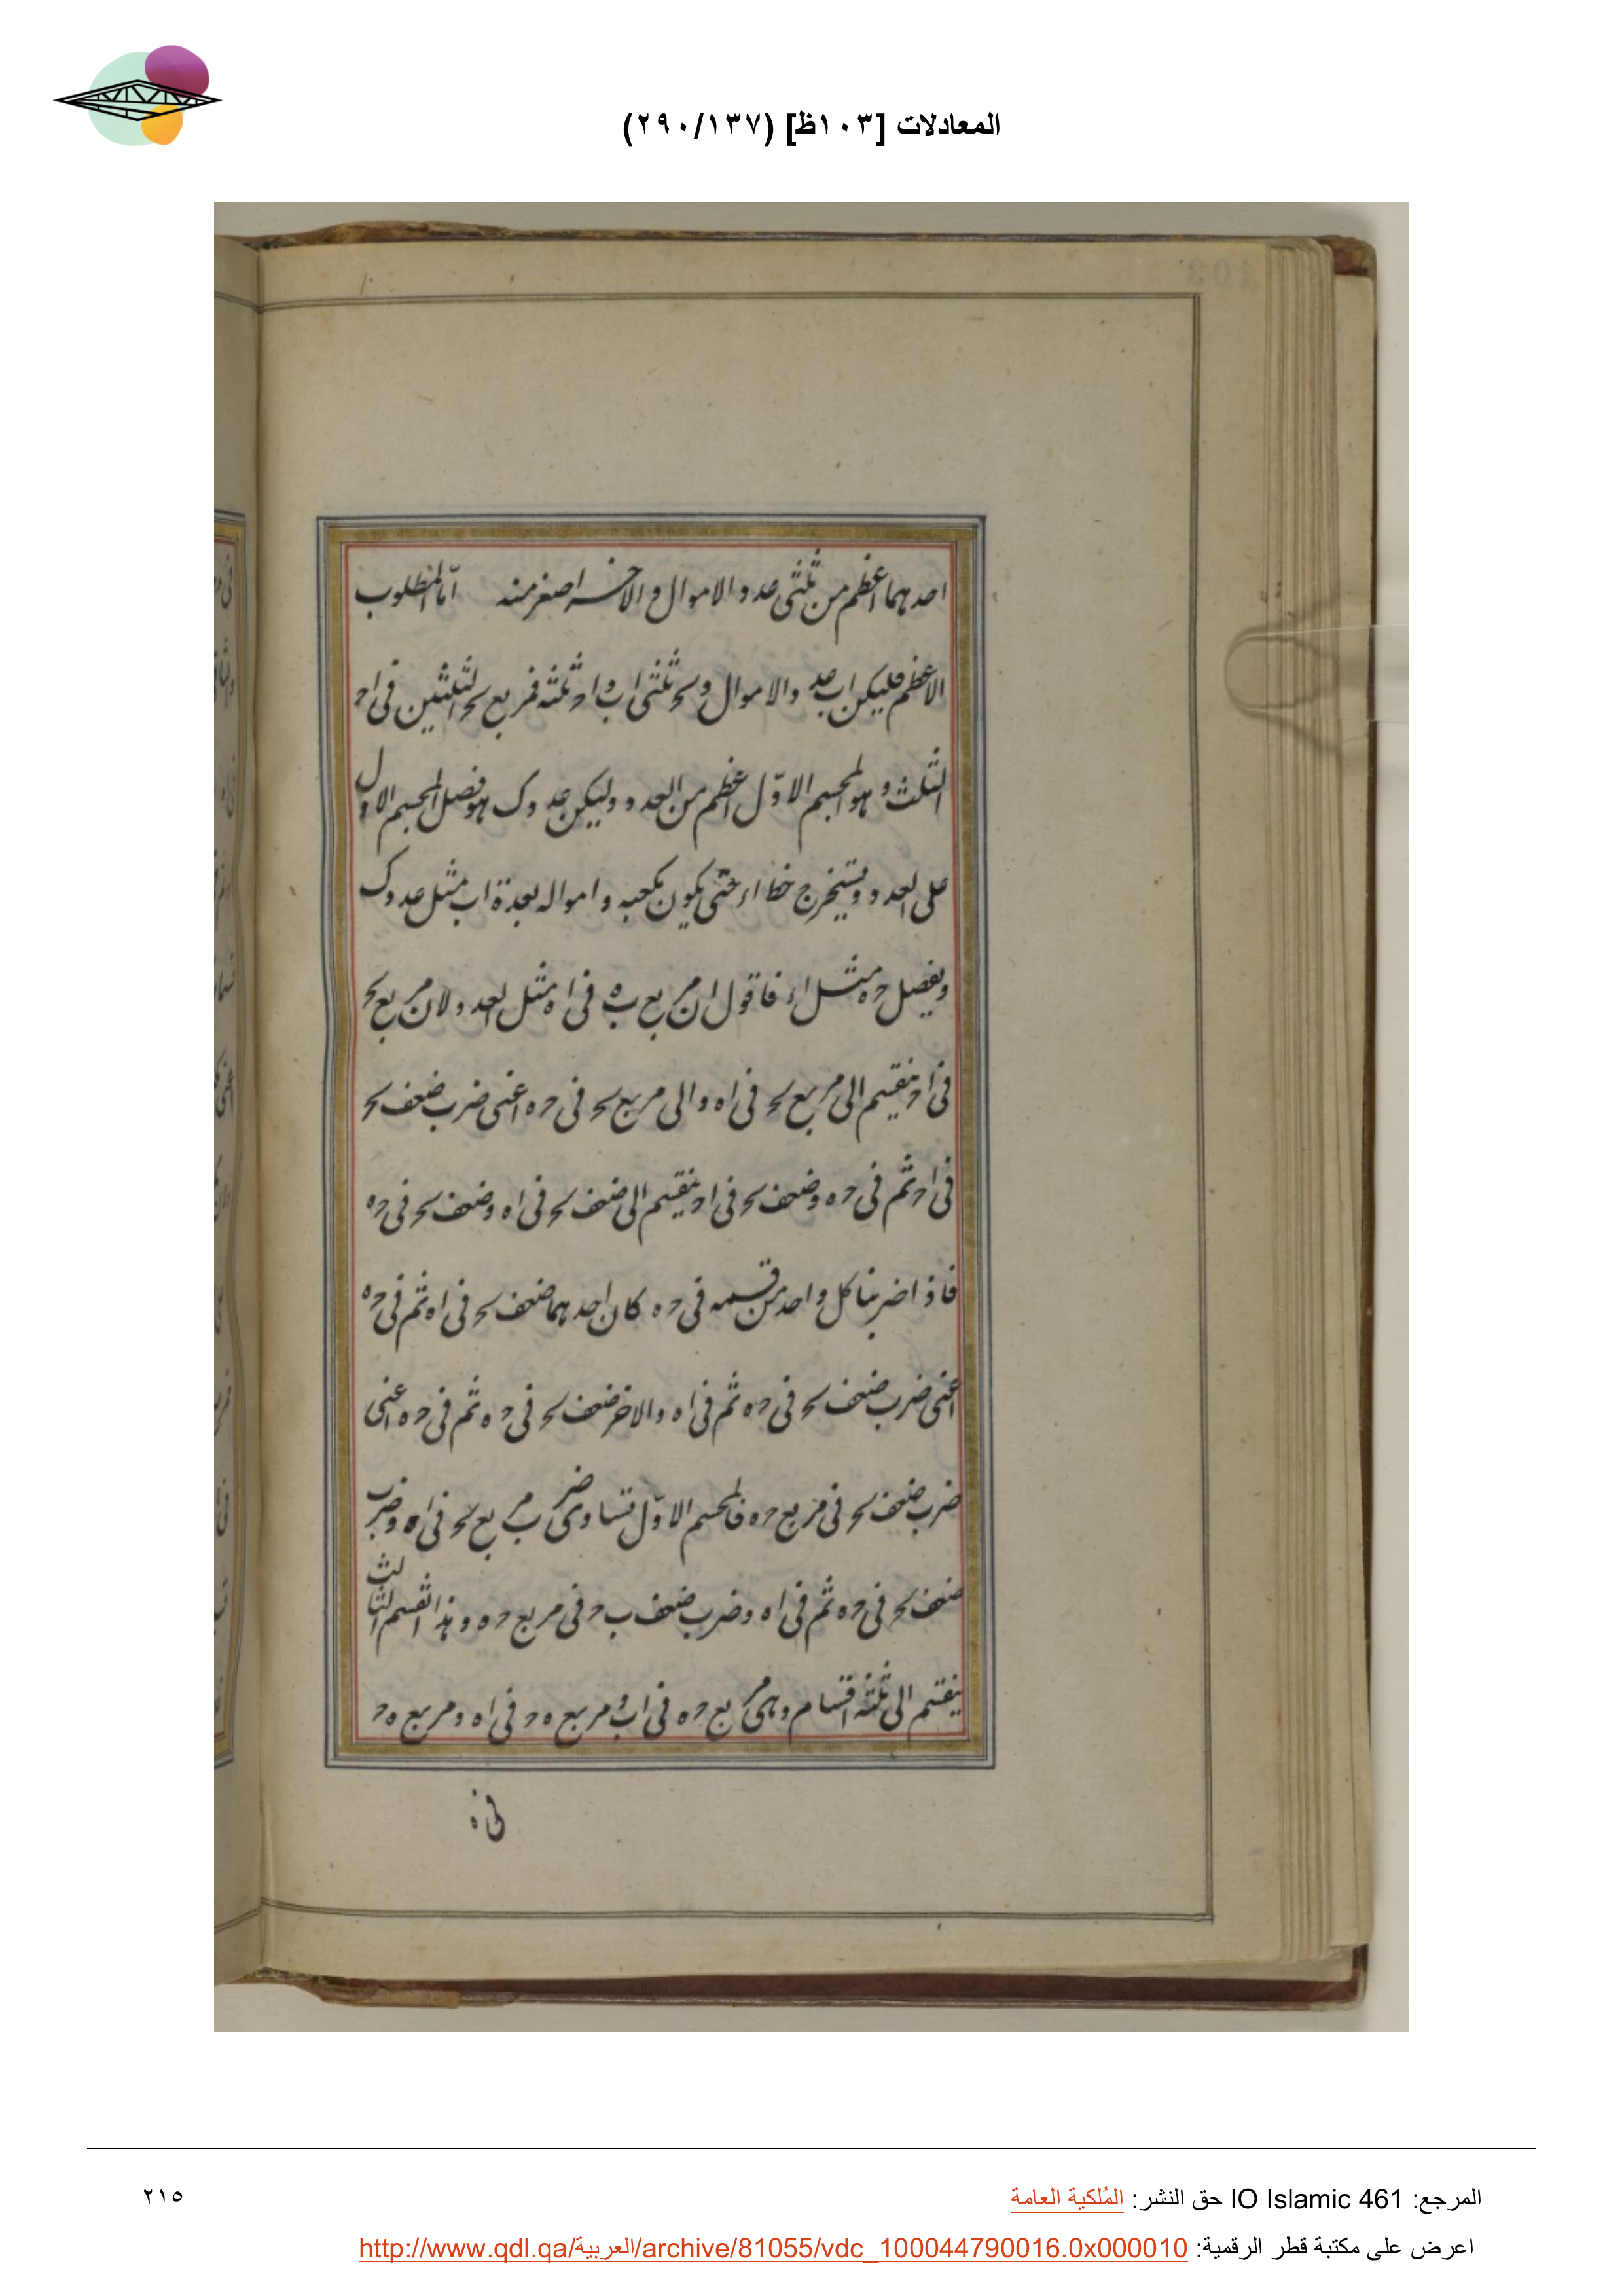 المعادلات [١٠٣ظ] (٢٩٠/١٣٧)
احدهما اعظم من ثلثى عدد الاموال والاخر اصغر منه امّا المطلوب
الاعظم فليكن اب عدد الاموال و بح ثلثى اب و اح ثلثه فمربع بح الثلثين فى اح
الثلث وهو المجسم الاوّل اعظم من العدد وليكن عدد ك هو فضل المجسم الاول
على العدد ويستخرج خط اء حتى يكون مكعبه وامواله بعدة اب مثل عدد ك
ويفصل حه مثل اء فاقول ان مربع به فى اه مثل العدد لان مربع بح
فى اح ينقسم الى مربع بح فى اه والى مربع بح فى حه اعنى ضرب ضعف بح
فى اح ثم فى حه وضعف بح فى اح ينقسم الى ضعف بح فى اه وضعف بح فى حه
فاذا ضربنا كل واحد من قسميه فى حه كان احدهما ضعف بح فى اه ثم فى حه
اعنى ضرب ضعف بح فى حه ثم فى اه والاخر ضعف بح فى حه ثم فى حه اعنى
ضرب ضعف بح فى مربع حه فالمجسم الاوّل تساوى ضرب مربع بح فى اه وضرب
ضعف بح فى حه ثم فى اه وضرب ضعف ب ح فى مربع حه وهذا القسم الثالث
ينقسم الى ثلثه اقسام وهى مربع حه فى اب و مربع ه ح فى اه و مربع ه ح
فى ه
المرجع: IO Islamic 461 حق النشر: المُلكية العامة
٢١٥
اعرض على مكتبة قطر الرقمية: http://www.qdl.qa/العربية/archive/81055/vdc_100044790016.0x000010